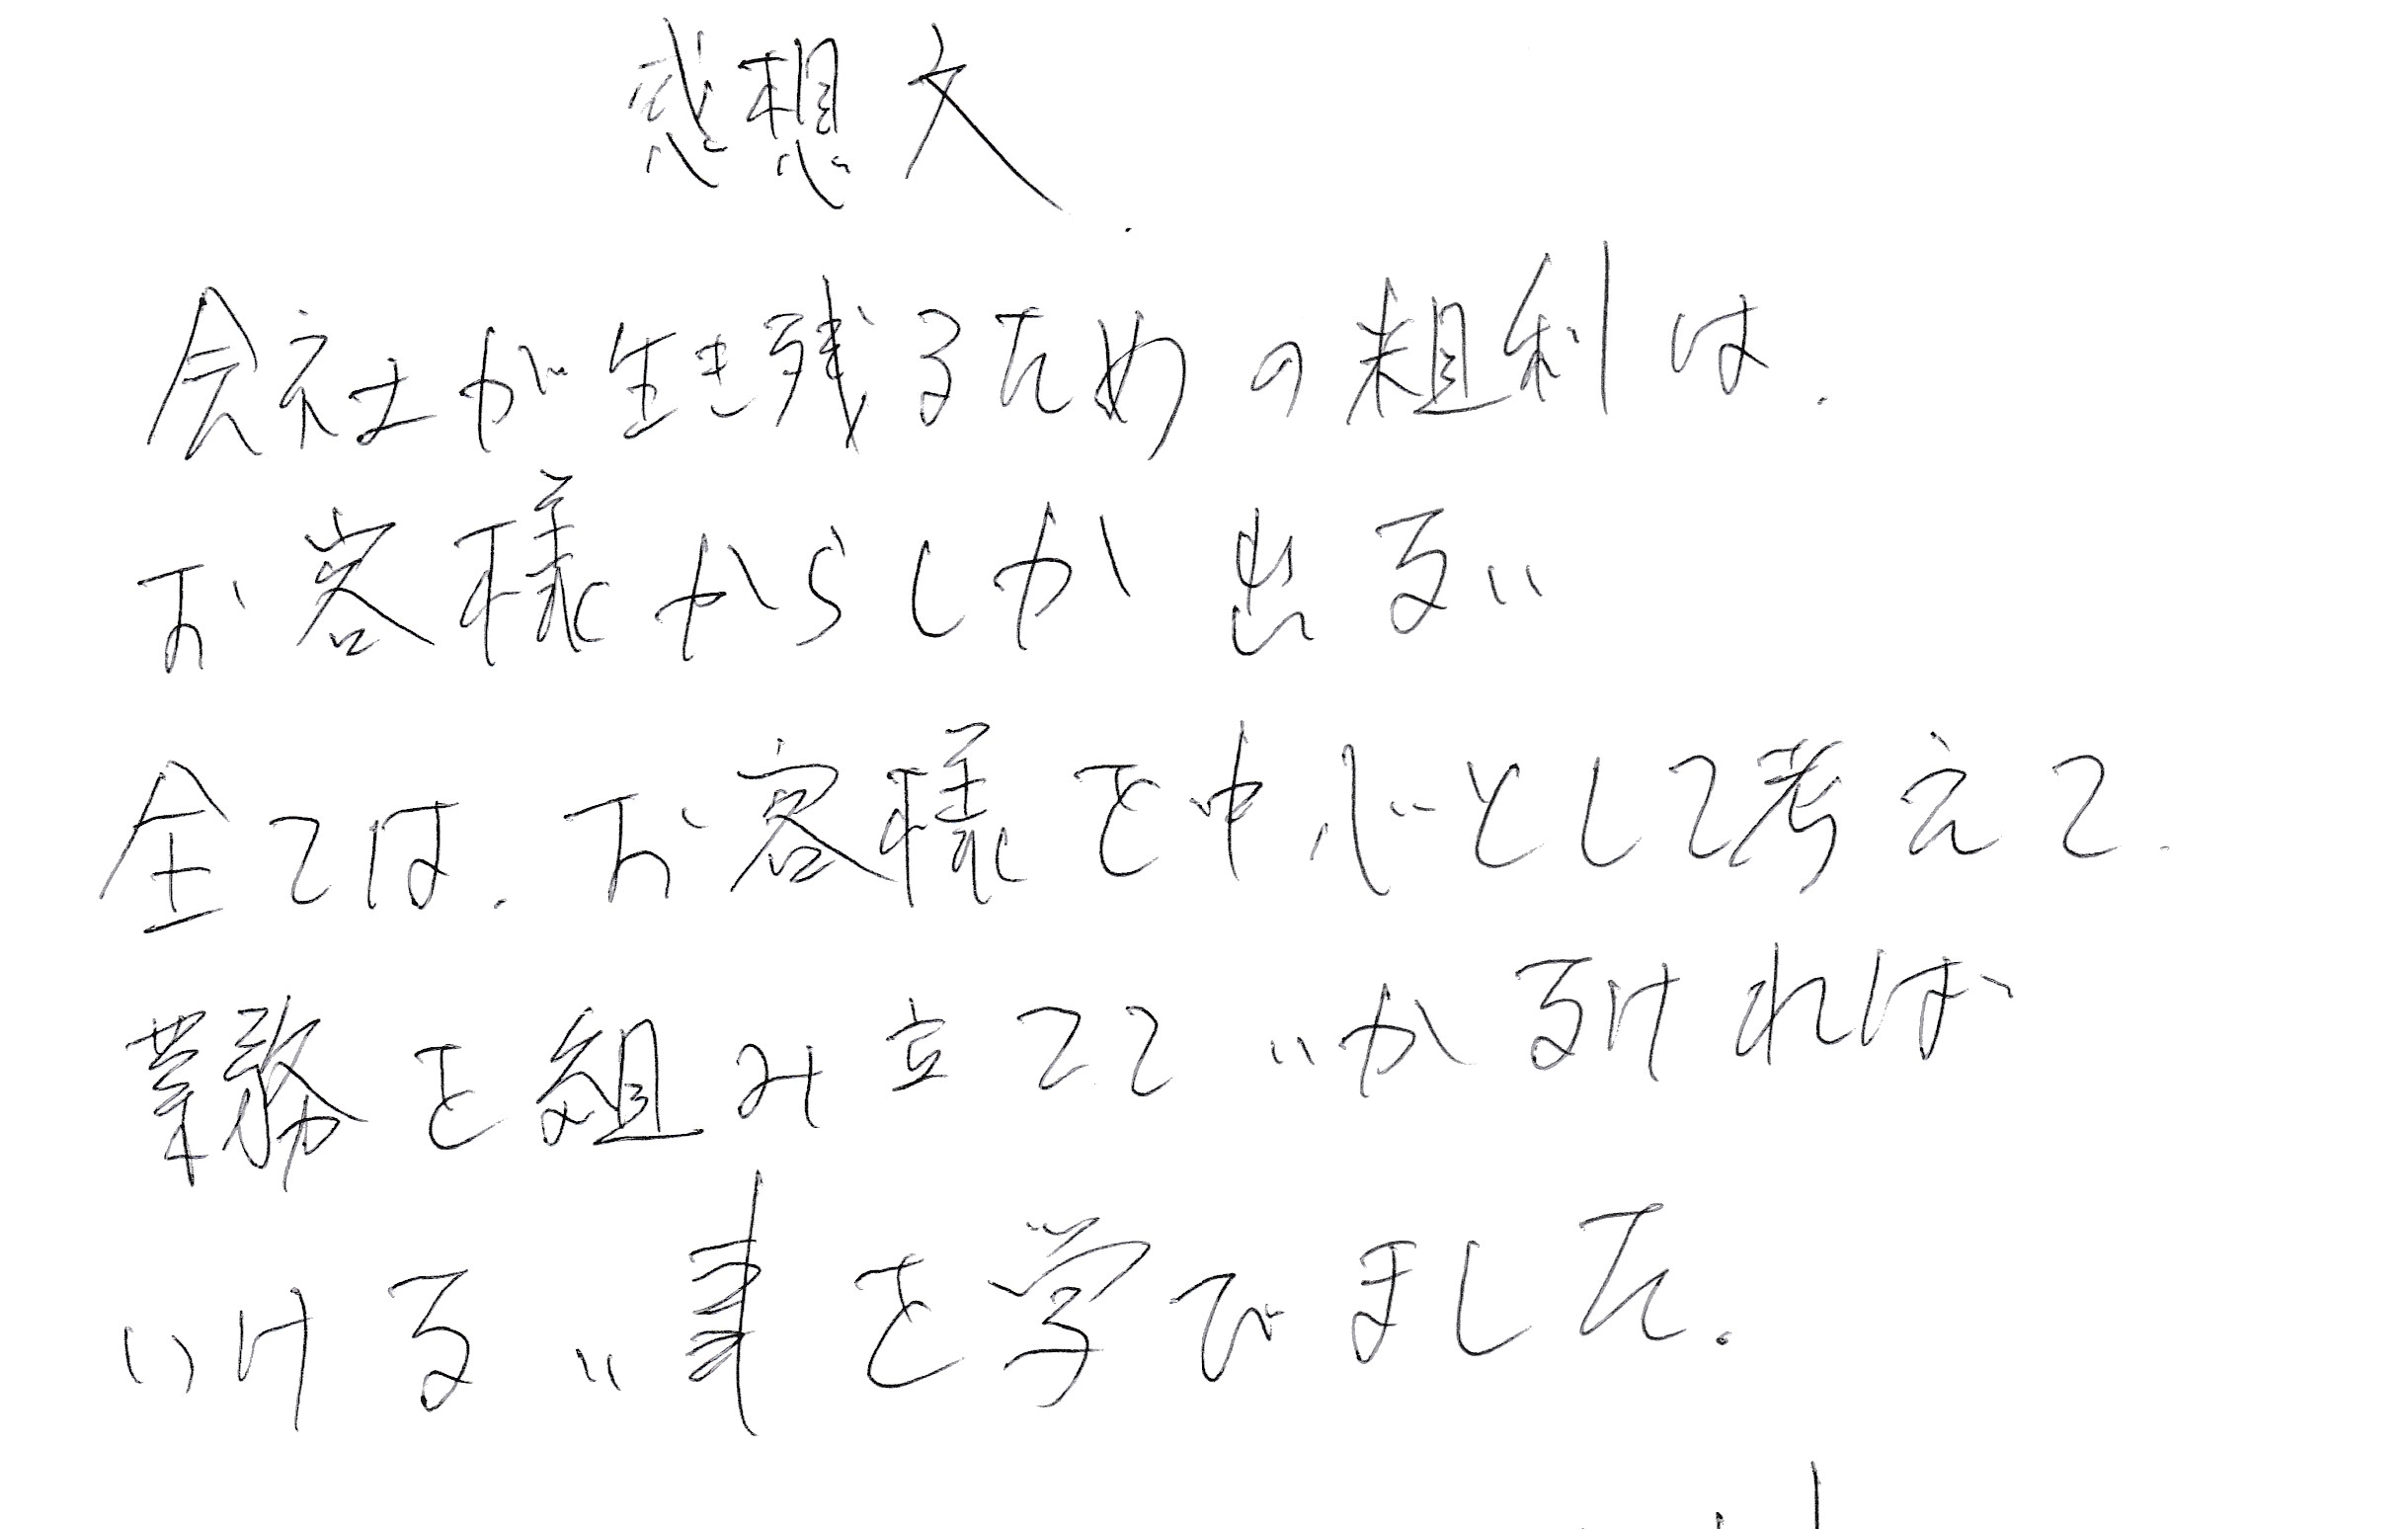 感想文
会社が生き残るための粗利は、
お客様からしか出ない
全ては、お客様を中心として考えて、
業務を組み立てていかなければ
いけない事を学びました。